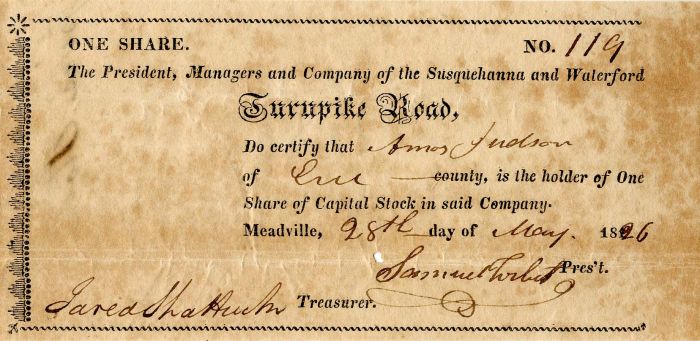 ONE SHARE. NO. 119
The President, Managers and Company of the Susquehanna and Waterford
Turnpike Road,
Do certify that Amos Judson
of Erie county, is the holder of One
Share of Capital Stock in said Company.
Meadville, 28th day of May. 1826
Samuel Pres't.
Jared Shattuck Treasurer.